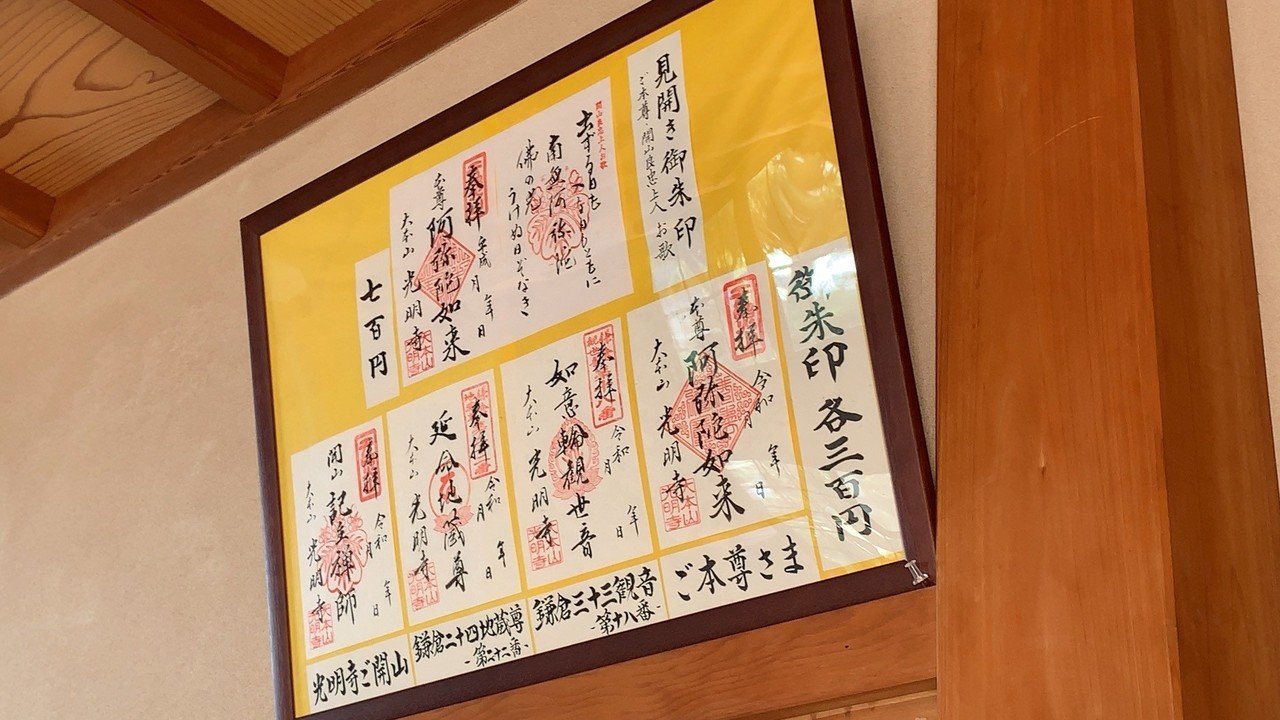 見開き御朱印
ご本尊・開山良忠上人 お歌
開山良忠上人お歌
南無阿弥陀
佛の光
うけぬ日ぞなき
奉拝
平成 年 月 日
本尊 阿弥陀如来
大本山 光明寺
七百円
御朱印 各三百円
奉拝
令和 年 月 日
本尊 阿弥陀如来
大本山 光明寺
ご本尊さま
奉拝
令和 年 月 日
如意輪観世音
大本山 光明寺
鎌倉三十三観音
-第十八番-
奉拝
令和 年 月 日
延命地蔵尊
大本山 光明寺
鎌倉二十四地蔵尊
-第二十二番-
奉拝
令和 年 月 日
開山 記主禅師
大本山 光明寺
光明寺ご開山